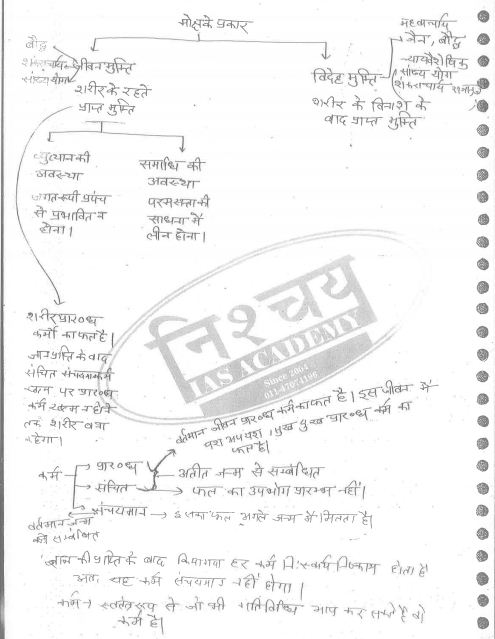 मोक्ष के प्रकार
बौद्ध
शंकराचार्य
सांख्य योग
जीवन मुक्ति
शरीर के रहते
प्राप्त मुक्ति
मध्वाचार्य
जैन, बौद्ध
न्यायवैशेषिक
सांख्य योग
शंकराचार्य रामानुज
विदेह मुक्ति
शरीर के विनाश के
बाद प्राप्त मुक्ति
व्युत्थान की
अवस्था
जगत रूपी प्रपंच
से प्रभावित न
होना।
समाधि की
अवस्था
परमसत्ता की
साधना में
लीन होना।
शरीर प्रारब्ध
कर्मों का फल है।
ज्ञान प्राप्ति के बाद
संचित संचयमान कर्म
खत्म पर प्रारब्ध
कर्म खत्म न होने
तक शरीर बना
रहेगा।
निश्चय
IAS ACADEMY
Since 2004
011-47074196
वर्तमान जीवन प्रारब्ध कर्म का फल है। इस जीवन में
यश अपयश, सुख दुःख प्रारब्ध कर्म का
फल है।
कर्म
प्रारब्ध
संचित
संचयमान
अतीत जन्म से सम्बंधित
फल का उपभोग प्रारम्भ नहीं।
इसका फल अगले जन्म में मिलता है।
वर्तमान जन्म
से सम्बंधित
ज्ञान की प्राप्ति के बाद किया गया हर कर्म निःस्वार्थ निष्काम होता है
अतः यह कर्म संचयमान नहीं होगा।
कर्म → स्वतंत्र रूप से जो भी गतिविधि आप कर सकते है वो
कर्म है।